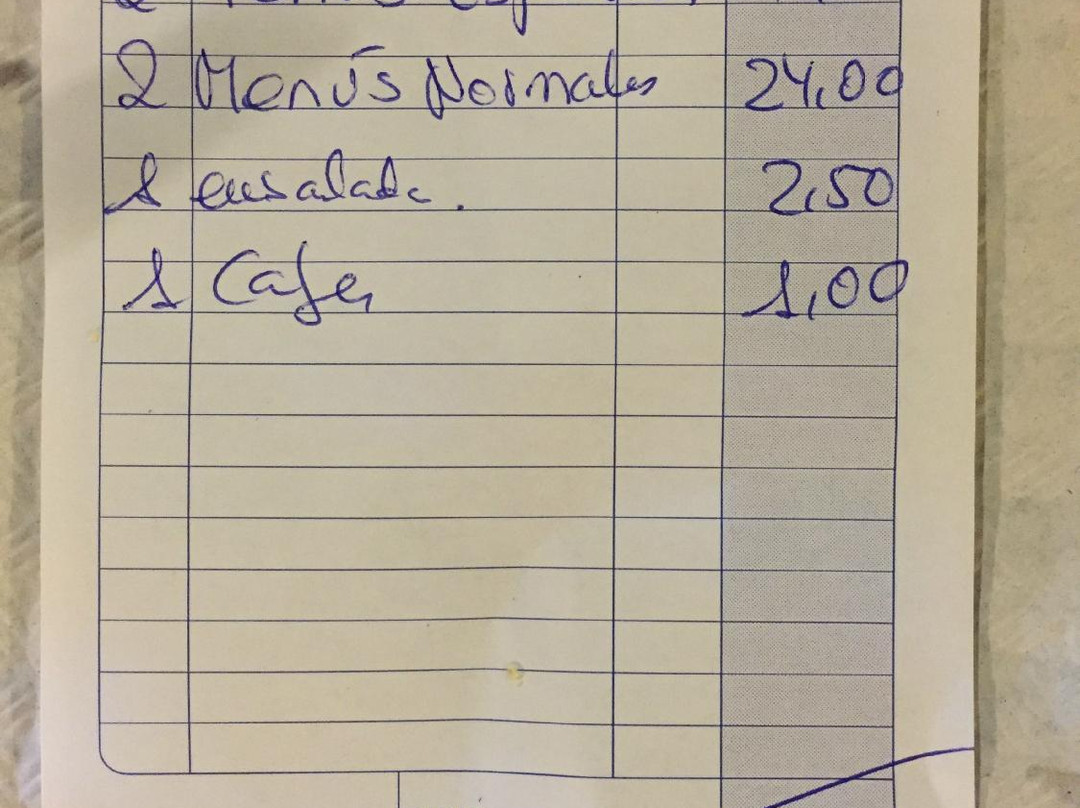 2 Menús Normales 24,00
1 ensalada. 2,50
1 Cafe 1,00